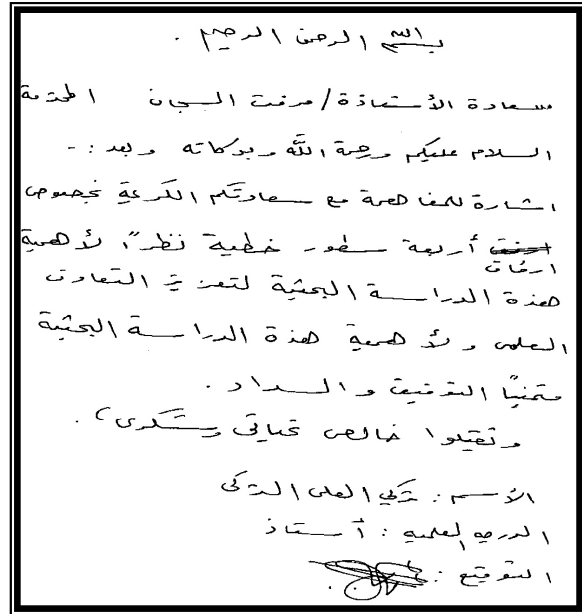 بسم الله الرحمن الرحيم .
سعادة الأستاذة/ مرفت السجان المحترمة
السلام عليكم ورحمة الله وبركاته وبعد :-
اشارة للمفاهمة مع سعادتكم الكريمة بخصوص
ارفاق أربعة سطور خطية نظراً لأهمية
هذة الدراسة البحثية لتعزيز التعاون
العلمى ولأهمية هذة الدراسة البحثية
متمنياً التوفيق والسداد .
وتقبلوا خالص تحياتى وشكرى ،
الأسم : تركي العلى التركى
الدرجه العلميه : أستاذ
التوقيع :